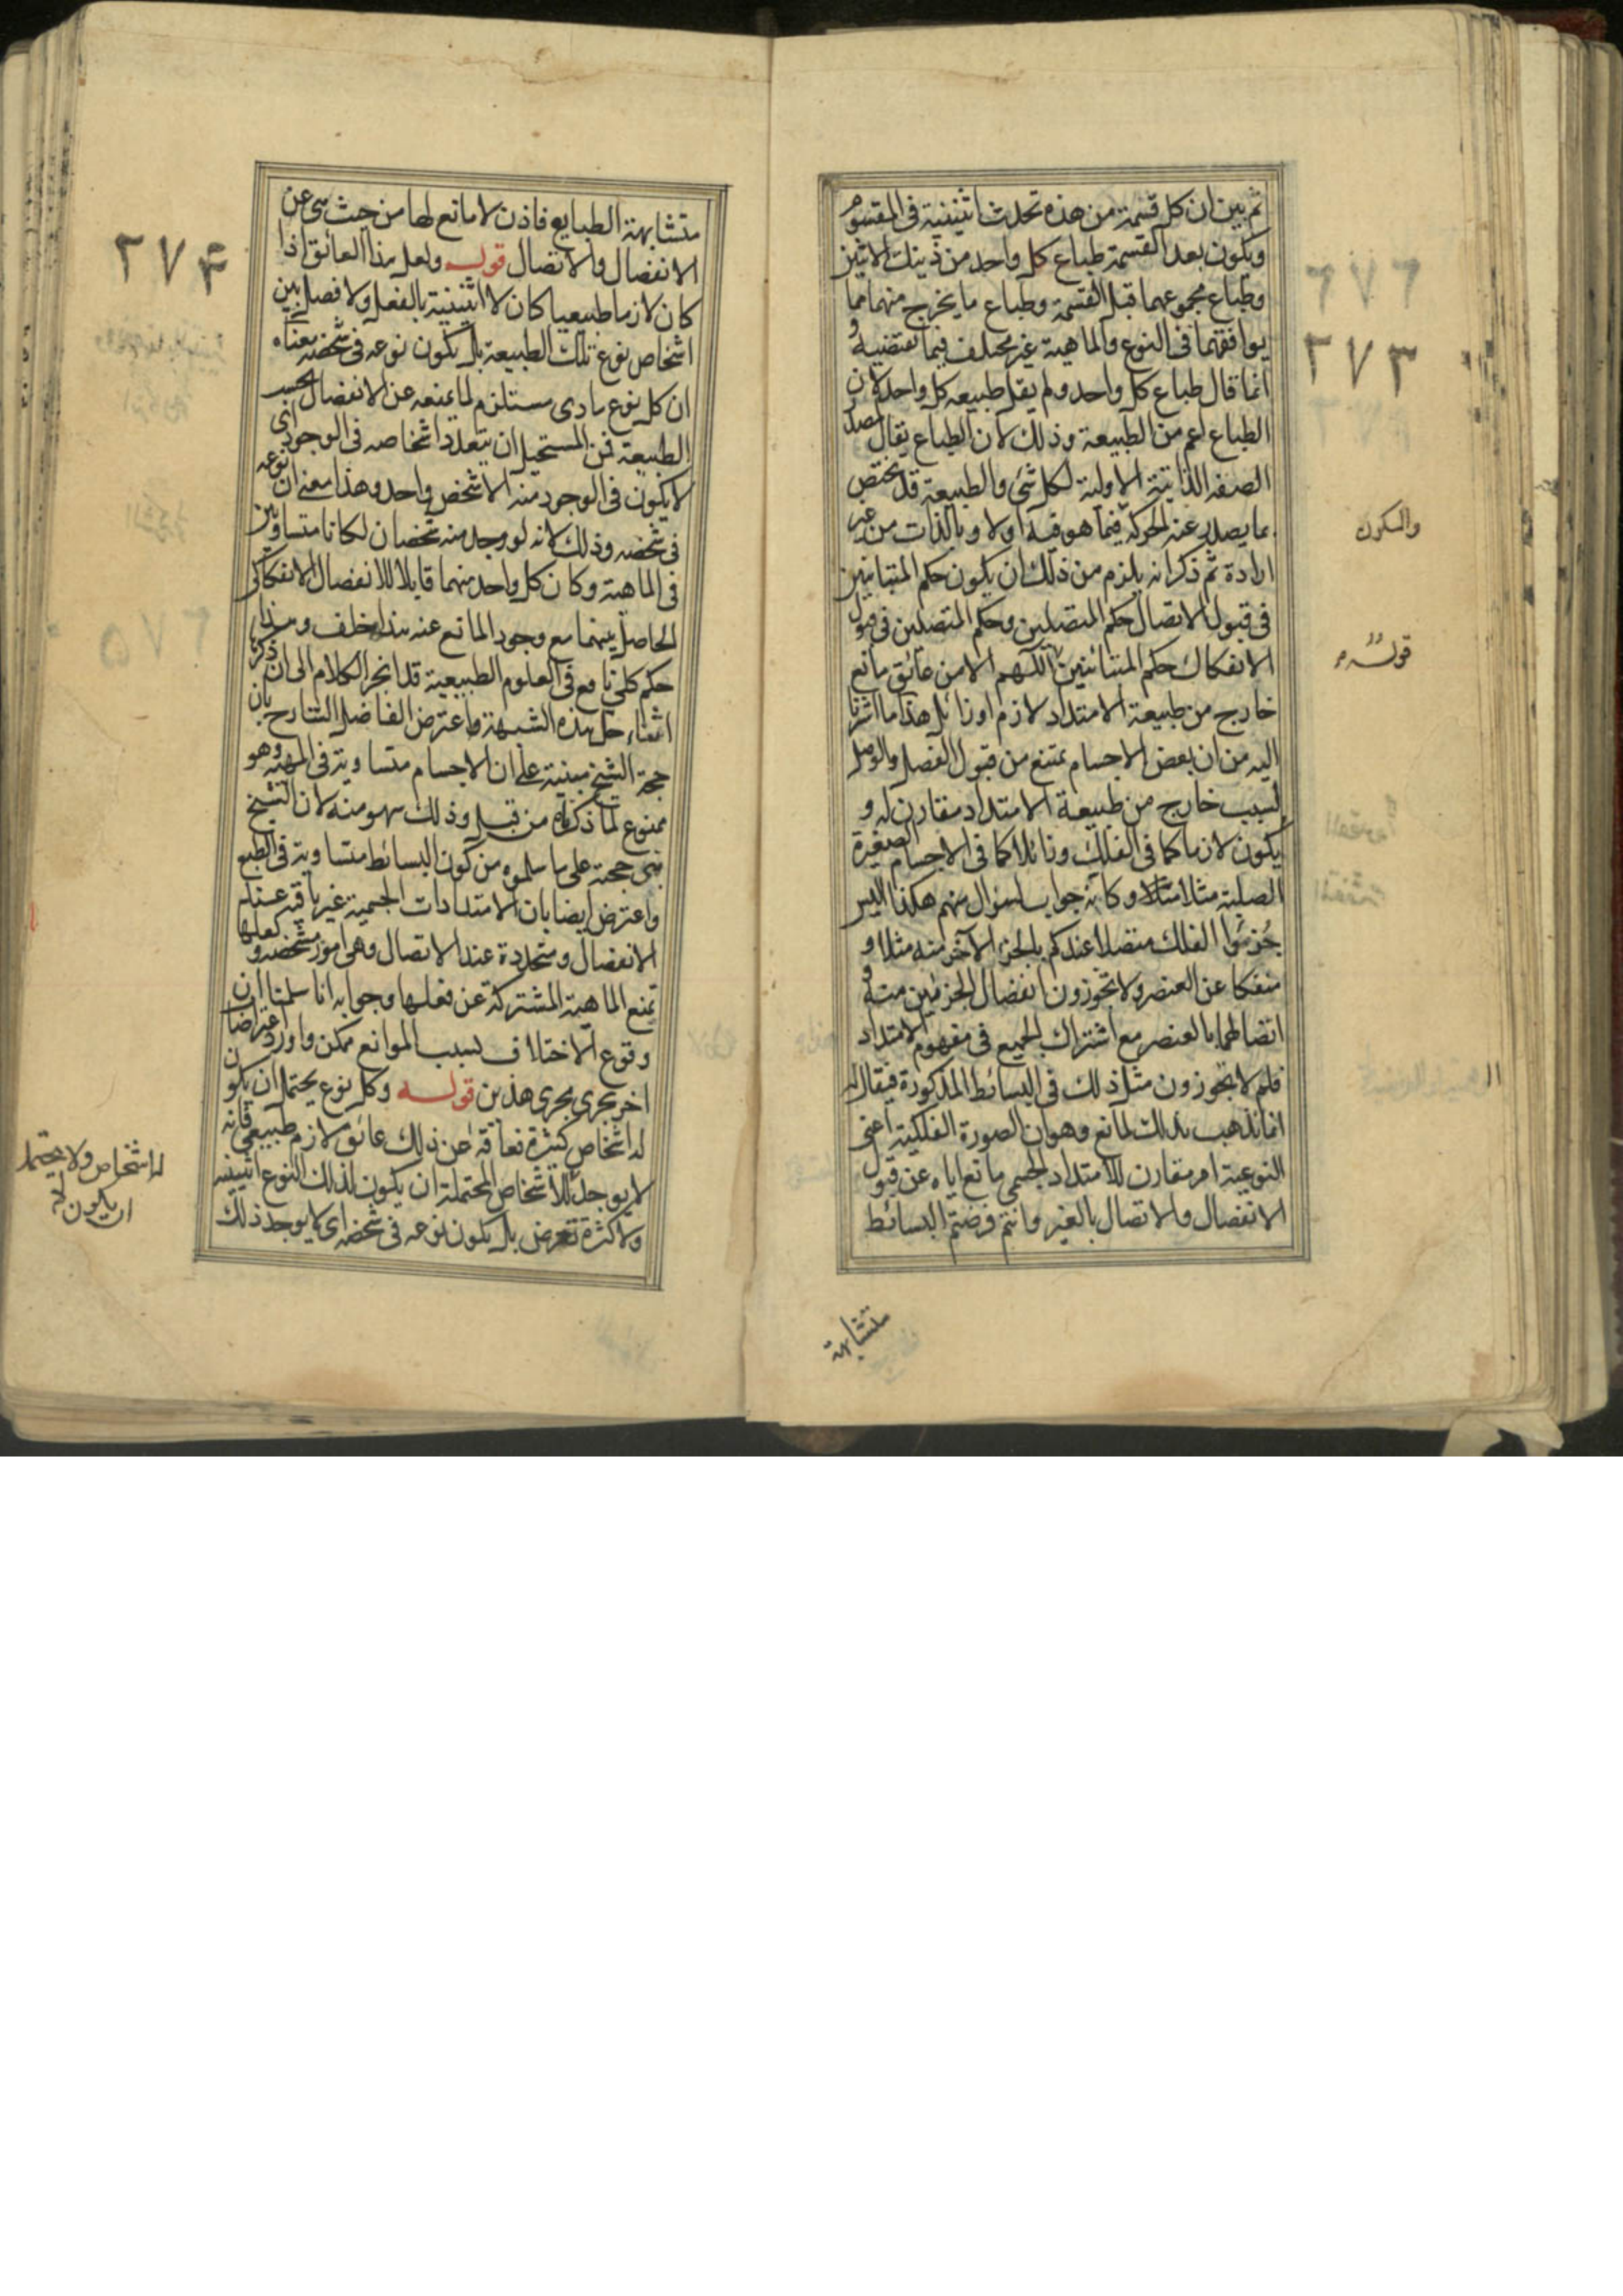 ثم بين ان كل قسمة من هذه تحدث اثنينية فى المقسوم
ويكون بعد القسمة طباع كل واحد من ذينك الاثنين
وطباع مجموعهما قبل القسمة وطباع ما يخرج منهما مما
يوافقهما فى النوع والماهية غير مختلف فيما تقتضيه و
انما قال طباع كل واحد ولم يقل طبيعه كل واحد لان
الطباع اعم من الطبيعة وذلك لان الطباع يقال لمصدر
الصفه الذاتية الاولية لكل شئ والطبيعة قد يختص
بما يصدر عنه الحركة فيما هو فيه اولا وبالذات من غير
ارادة ثم ذكر انه يلزم من ذلك ان يكون حكم المتباينين
فى قبول الاتصال حكم المتصلين وحكم المتصلين فى قبول
الانفكاك حكم المتباينين اللهم الا من عائق مانع
خارج من طبيعة الامتداد لازم او زائل هذا ما اشرنا
اليه من ان بعض الاجسام يمتنع من قبول الفصل والوصل
لسبب خارج من طبيعة الامتداد مقارن له و
يكون لازما كما فى الفلك وزائلا كما فى الاجسام الصغيرة
الصلبة مثلا وكانه جواب لسؤال منهم هكذا اليس
جزئوا الفلك متصلا عندكم بالجزء الاخر منه مثلا و
منفكا عن العنصر ولا تجوزون انفصال الجزئين منه و
اتصالهما بالعنصر مع اشتراك الجميع فى مفهوم الامتداد
فلم لا يجوزون مثل ذلك فى البسائط المذكورة فيقال له
انما نذهب بذلك لمانع وهو ان الصورة الفلكية اعنى
النوعية امر مقارن للامتداد الجسمى مانع اياه عن قبول
الانفصال والاتصال بالغير وانتم فرضتم البسائط
متشابهة
٢٧٣
والسكون
قوله
متشابهة الطبايع فاذن لا مانع لها من حيث هى عن
الانفصال والاتصال قوله ولعل هذا العائق اذا
كان لازما طبيعيا كان لا اثنينية بالفعل ولا فصل بين
اشخاص نوع تلك الطبيعة بل يكون نوعه فى شخصه معناه
ان كل نوع مادى مستلزم لما يمنعه عن الانفصال بحسب
الطبيعة فمن المستحيل ان يتعدد اشخاصه فى الوجود اى
لا يكون فى الوجود منه الا شخص واحد وهذا معنى ان نوعه
فى شخصه وذلك لانه لو وجد منه شخصان لكانا متساويين
فى الماهية وكان كل واحد منهما قابلا للانفصال الانفكاكى
الحاصل بينهما مع وجود المانع عنه هذا خلف وهذا
حكم كلى نافع فى العلوم الطبيعية قد انجر الكلام الى ان ذكره
اثناء حل هذه الشبهة واعترض الفاضل الشارح بان
حجة الشيخ مبنية على ان الاجسام متساوية فى المهية وهو
ممنوع لما ذكرناه من قبل وذلك سهو منه لان الشيخ
بنى حجته على ما سلموه من كون البسائط متساوية فى الطبع
واعترض ايضا بان الامتدادات الجسمية غير باقية عند
الانفصال ومتجددة عند الاتصال وهى امور مشخصة و لعلها
تمنع الماهية المشتركة عن فعلها وجوابه انا سلمنا ان
وقوع الاختلاف لسبب الموانع ممكن واورد اعتراضا
اخر يجرى مجرى هذين قوله وكل نوع يحتمل ان يكون
له اشخاص كثيرة فعاقه عن ذلك عائق لازم طبيعى فانه
لا يوجد للاشخاص المحتملة ان يكون لذلك النوع اثنينية
ولا كثرة تعرض بل يكون نوعه فى شخصه اى لا يوجد ذلك
٢٧٤
له اشخاص ولا يحتمل
ان يكون له